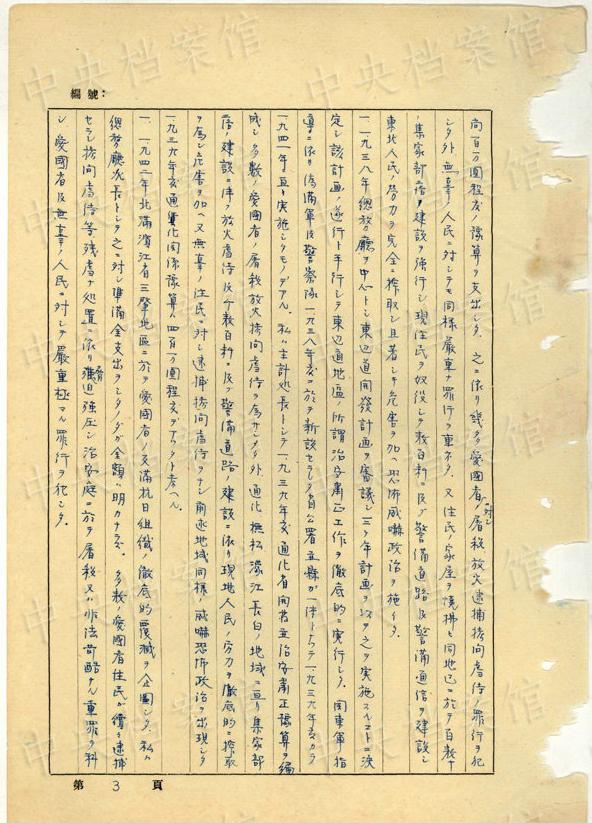 編號：
向百万圓程度ノ豫算ヲ支出シタ。之ニ依リ幾多愛國者ニ対シ屠殺放火逮捕拷问虐待ノ罪行ヲ犯
シタ外無辜ノ人民ニ対シテモ同様厳重ナ罪行ヲ重ネタ。又住民ノ家屋ヲ焼拂ヒ同地区ニ於テ百数十
ノ集家部落ヲ建設ヲ強行シ現住民ヲ奴役シテ数百粁ニ及ブ警備道路及警備通信ヲ建設シ
東北人民ノ労力ヲ完全ニ搾取シ且著シキ危害ヲ加ヘ恐怖威嚇政治ヲ施イタ。
一、一九三八年総務廳ヲ中心トシ東辺道開發計画ヲ審議シ三ケ年計画ヲ以テ之ヲ実施スルコトニ決
定シ該計画ノ遂行ト平行シテ東辺道地區ノ所謂治安肅正工作ヲ徹底的ニ実行シタ。関東軍指
導ニ依リ偽満軍及警察隊一九三八年度ニ於テ新設セラレタ省公署並縣ガ一体トナッテ一九三九年度カラ
一九四一年ニ亘リ実施シタモノデアル。私ハ主計処長トシテ一九三九年度通化省関係並治安肅正豫算ヲ編
成シ多数ノ愛國者ノ屠殺放火拷向虐待ヲ為サシメタ外通化撫松濛江長白ノ地域ニ亘リ集家部
落ノ建設ニ伴フ放火虐待及々数百粁ニ及ブ警備道路ノ建設ニ依リ現地人民ノ労力ヲ徹底的ニ搾取
ヲ為シ危害ヲ加ヘ又無辜ノ住民ニ対シ逮捕拷向虐待ヲナシ前述地域同様ノ威嚇恐怖政治ヲ出現シタ
一九三九年度通化関係豫算ハ四百万圓程度デアッタト考ヘル。
一、一九四二年北満濱江省三肇地區ニ於テ愛國者ノ反満抗日組織ノ徹底的覆滅ヲ企圖シタ。私ハ
総務廳次長トシテ之ニ対シ準備金支出ヲシタノダガ金額ハ明カナラズ。多数ノ愛國者住民ガ續々逮捕
セラレ拷向虐待等残虐ナ処置ニ依リ脅迫強圧シ治安庭ニ於テ屠殺又ハ非法苛酷ナル重罪ヲ科
シ愛國者及無辜ノ人民ニ対シテ嚴重極マル罪行ヲ犯シタ。
第 3 頁
中央档案馆